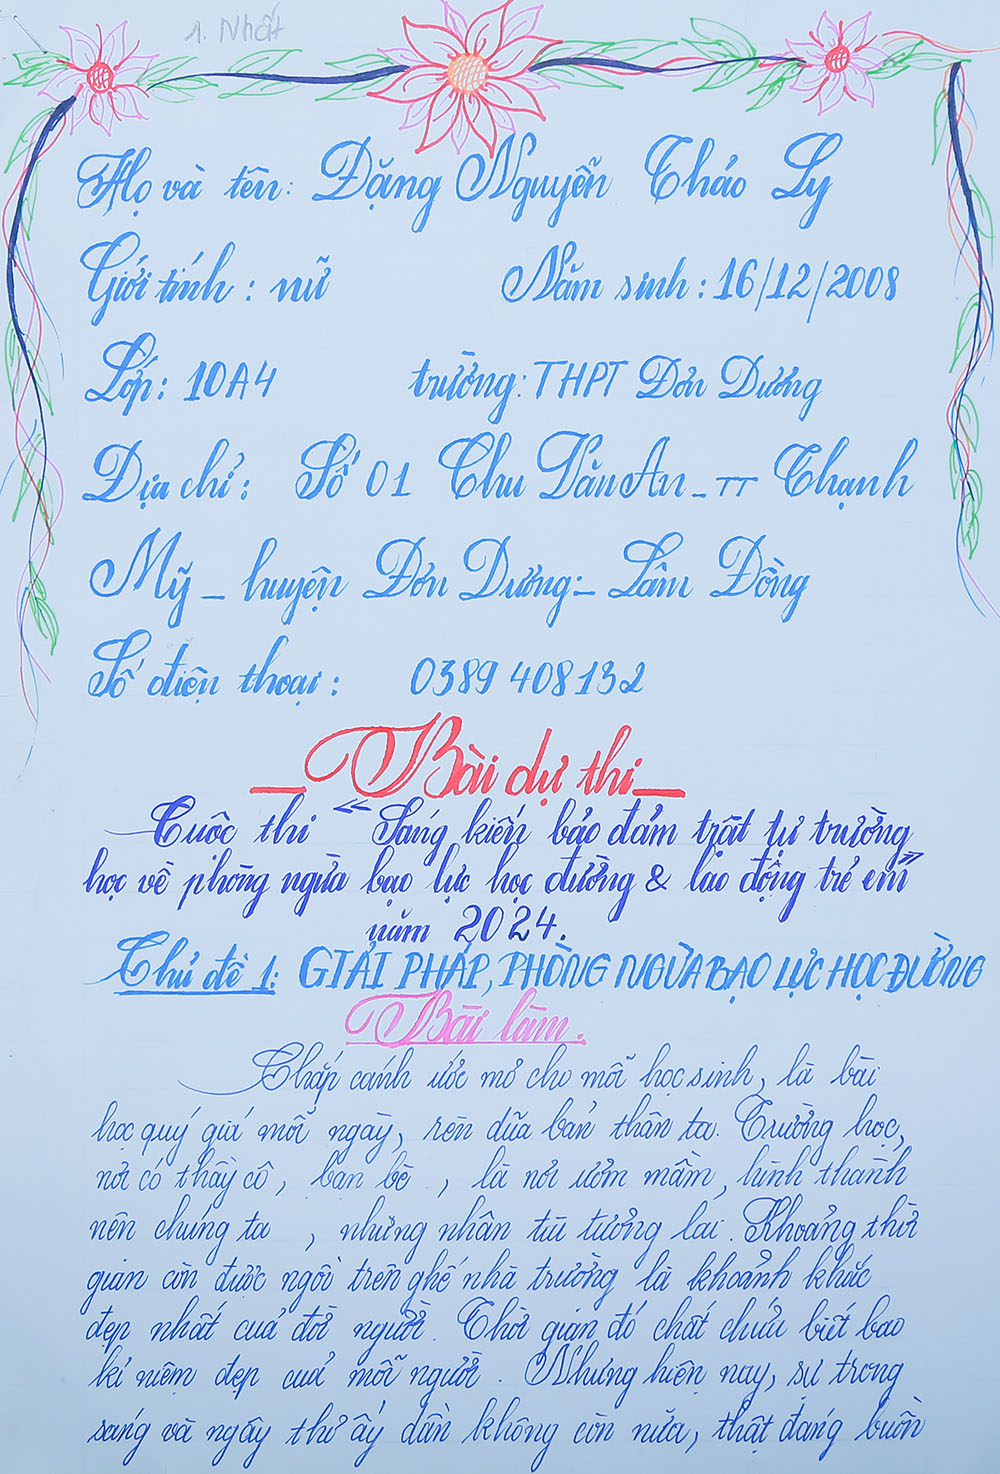 1. Nhất
Họ và tên: Đặng Nguyễn Thảo Ly
Giới tính: nữ Năm sinh: 16/12/2008
Lớp: 10A4 trường: THPT Đơn Dương
Địa chỉ: Số 01 Chu Văn An - TT Thạnh
Mỹ - huyện Đơn Dương - Lâm Đồng
Số điện thoại: 0389 408132
Bài dự thi
Cuộc thi "Sáng kiến bảo đảm trật tự trường
học về phòng ngừa bạo lực học đường & lao động trẻ em"
năm 2024.
Chủ đề 1: GIẢI PHÁP, PHÒNG NGỪA BẠO LỰC HỌC ĐƯỜNG
Bài làm.
Chắp cánh ước mơ cho mỗi học sinh, là bài
học quý giá mỗi ngày, rèn dũa bản thân ta. Trường học,
nơi có thầy cô, bạn bè, là nơi ươm mầm, hình thành
nên chúng ta, những nhân tài tương lai. Khoảng thời
gian còn được ngồi trên ghế nhà trường là khoảnh khắc
đẹp nhất của đời người. Thời gian đó chất chứa biết bao
kỉ niệm đẹp của mỗi người. Nhưng hiện nay, sự trong
sáng và ngây thơ ấy dần không còn nữa, thật đáng buồn